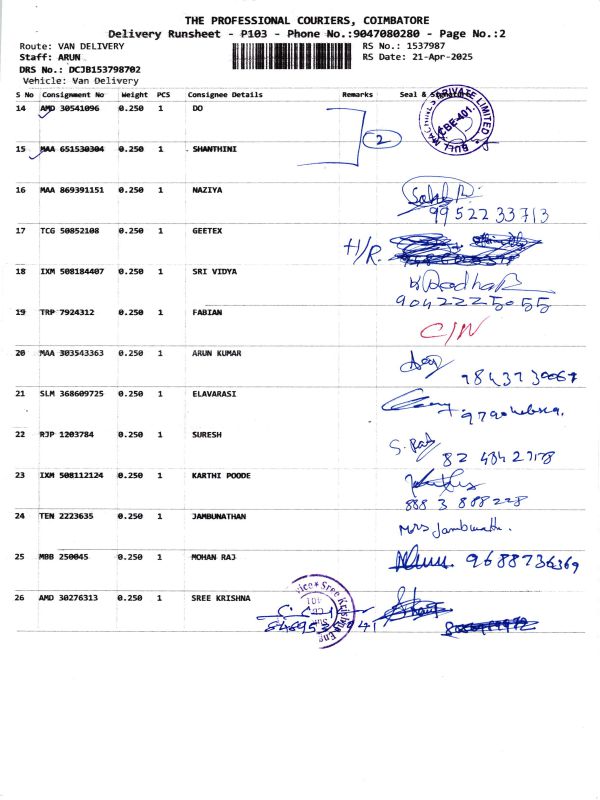 THE PROFESSIONAL COURIERS, COIMBATORE
Delivery Runsheet - P103 - Phone No.:9047080280 - Page No.:2
Route: VAN DELIVERY RS No.: 1537987
Staff: ARUN RS Date: 21-Apr-2025
DRS No.: DCJB153798702
Vehicle: Van Delivery
S No Consignment No Weight PCS Consignee Details Remarks Seal &
14 AMD 30541096 0.250 1 DO
BULL MACHINES PRIVATE LIMITED
CBE-401.
2
15 MAA 651530304 0.250 1 SHANTHINI
16 MAA 869391151 0.250 1 NAZIYA
9952233713
17 TCG 50852108 0.250 1 GEETEX
H/R.
18 IXM 508184407 0.250 1 SRI VIDYA
9042225055
19 TRP 7924312 0.250 1 FABIAN
C/N
20 MAA 303543363 0.250 1 ARUN KUMAR
9843730067
21 SLM 368609725 0.250 1 ELAVARASI
22 RJP 1203784 0.250 1 SURESH
23 IXM 508112124 0.250 1 KARTHI POODE
888 3 888228
24 TEN 2223635 0.250 1 JAMBUNATHAN
Mrs Jambunath.
25 MBB 250045 0.250 1 MOHAN RAJ
9688736369
26 AMD 30276313 0.250 1 SREE KRISHNA